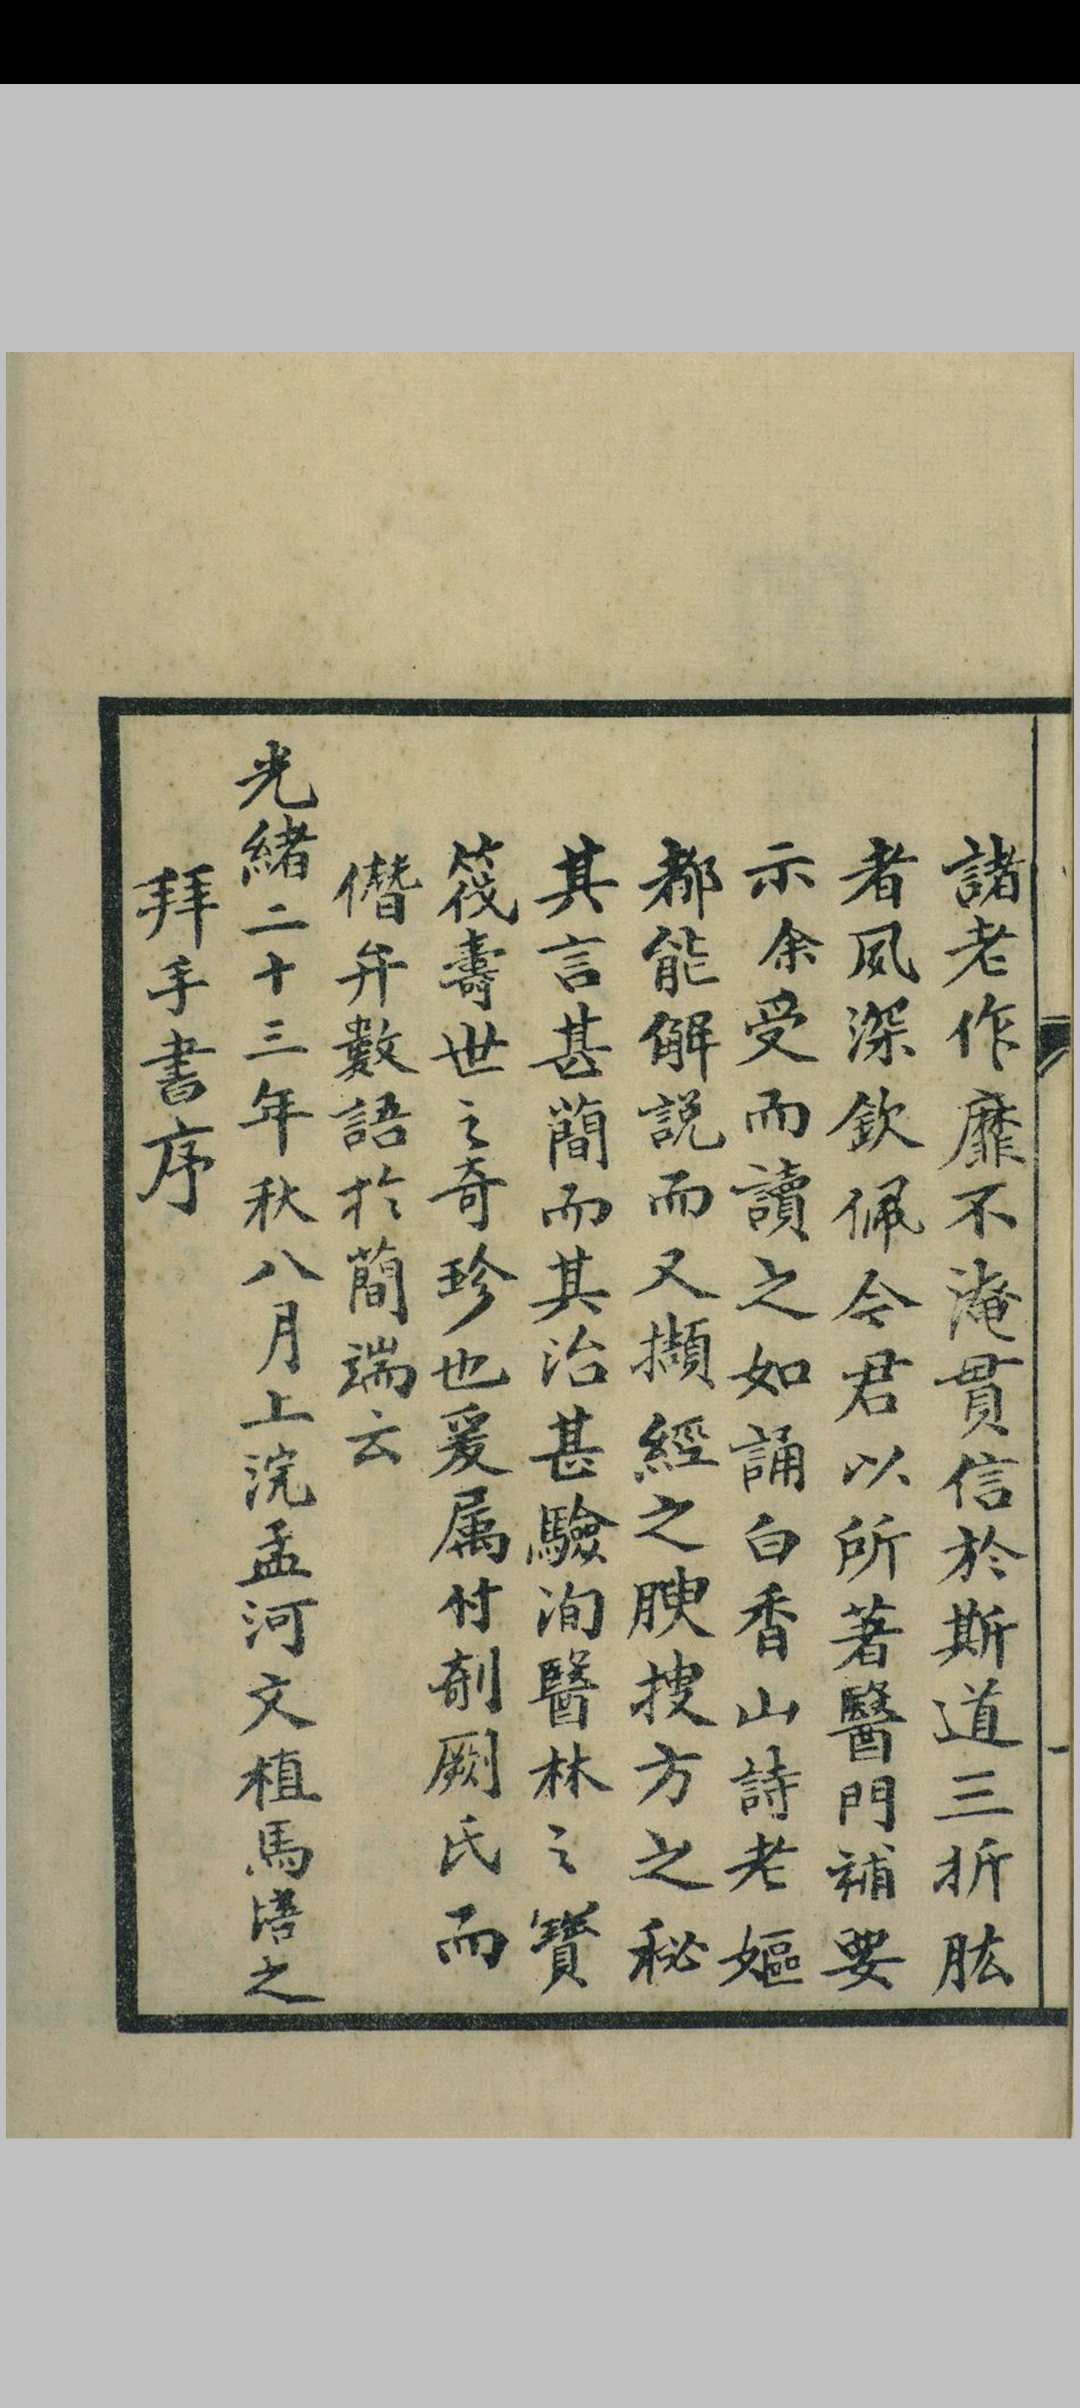 諸老作靡不淹貫信於斯道三折肱
者夙深欽佩今君以所著醫門補要
示余受而讀之如誦白香山詩老嫗
都能解說而又擷經之腴搜方之秘
其言甚簡而其治甚驗洵醫林之寶
筏壽世之奇珍也爰属付剞劂氏而
僭弁數語於簡端云
光緒二十三年秋八月上浣孟河文植馬培之
拜手書序